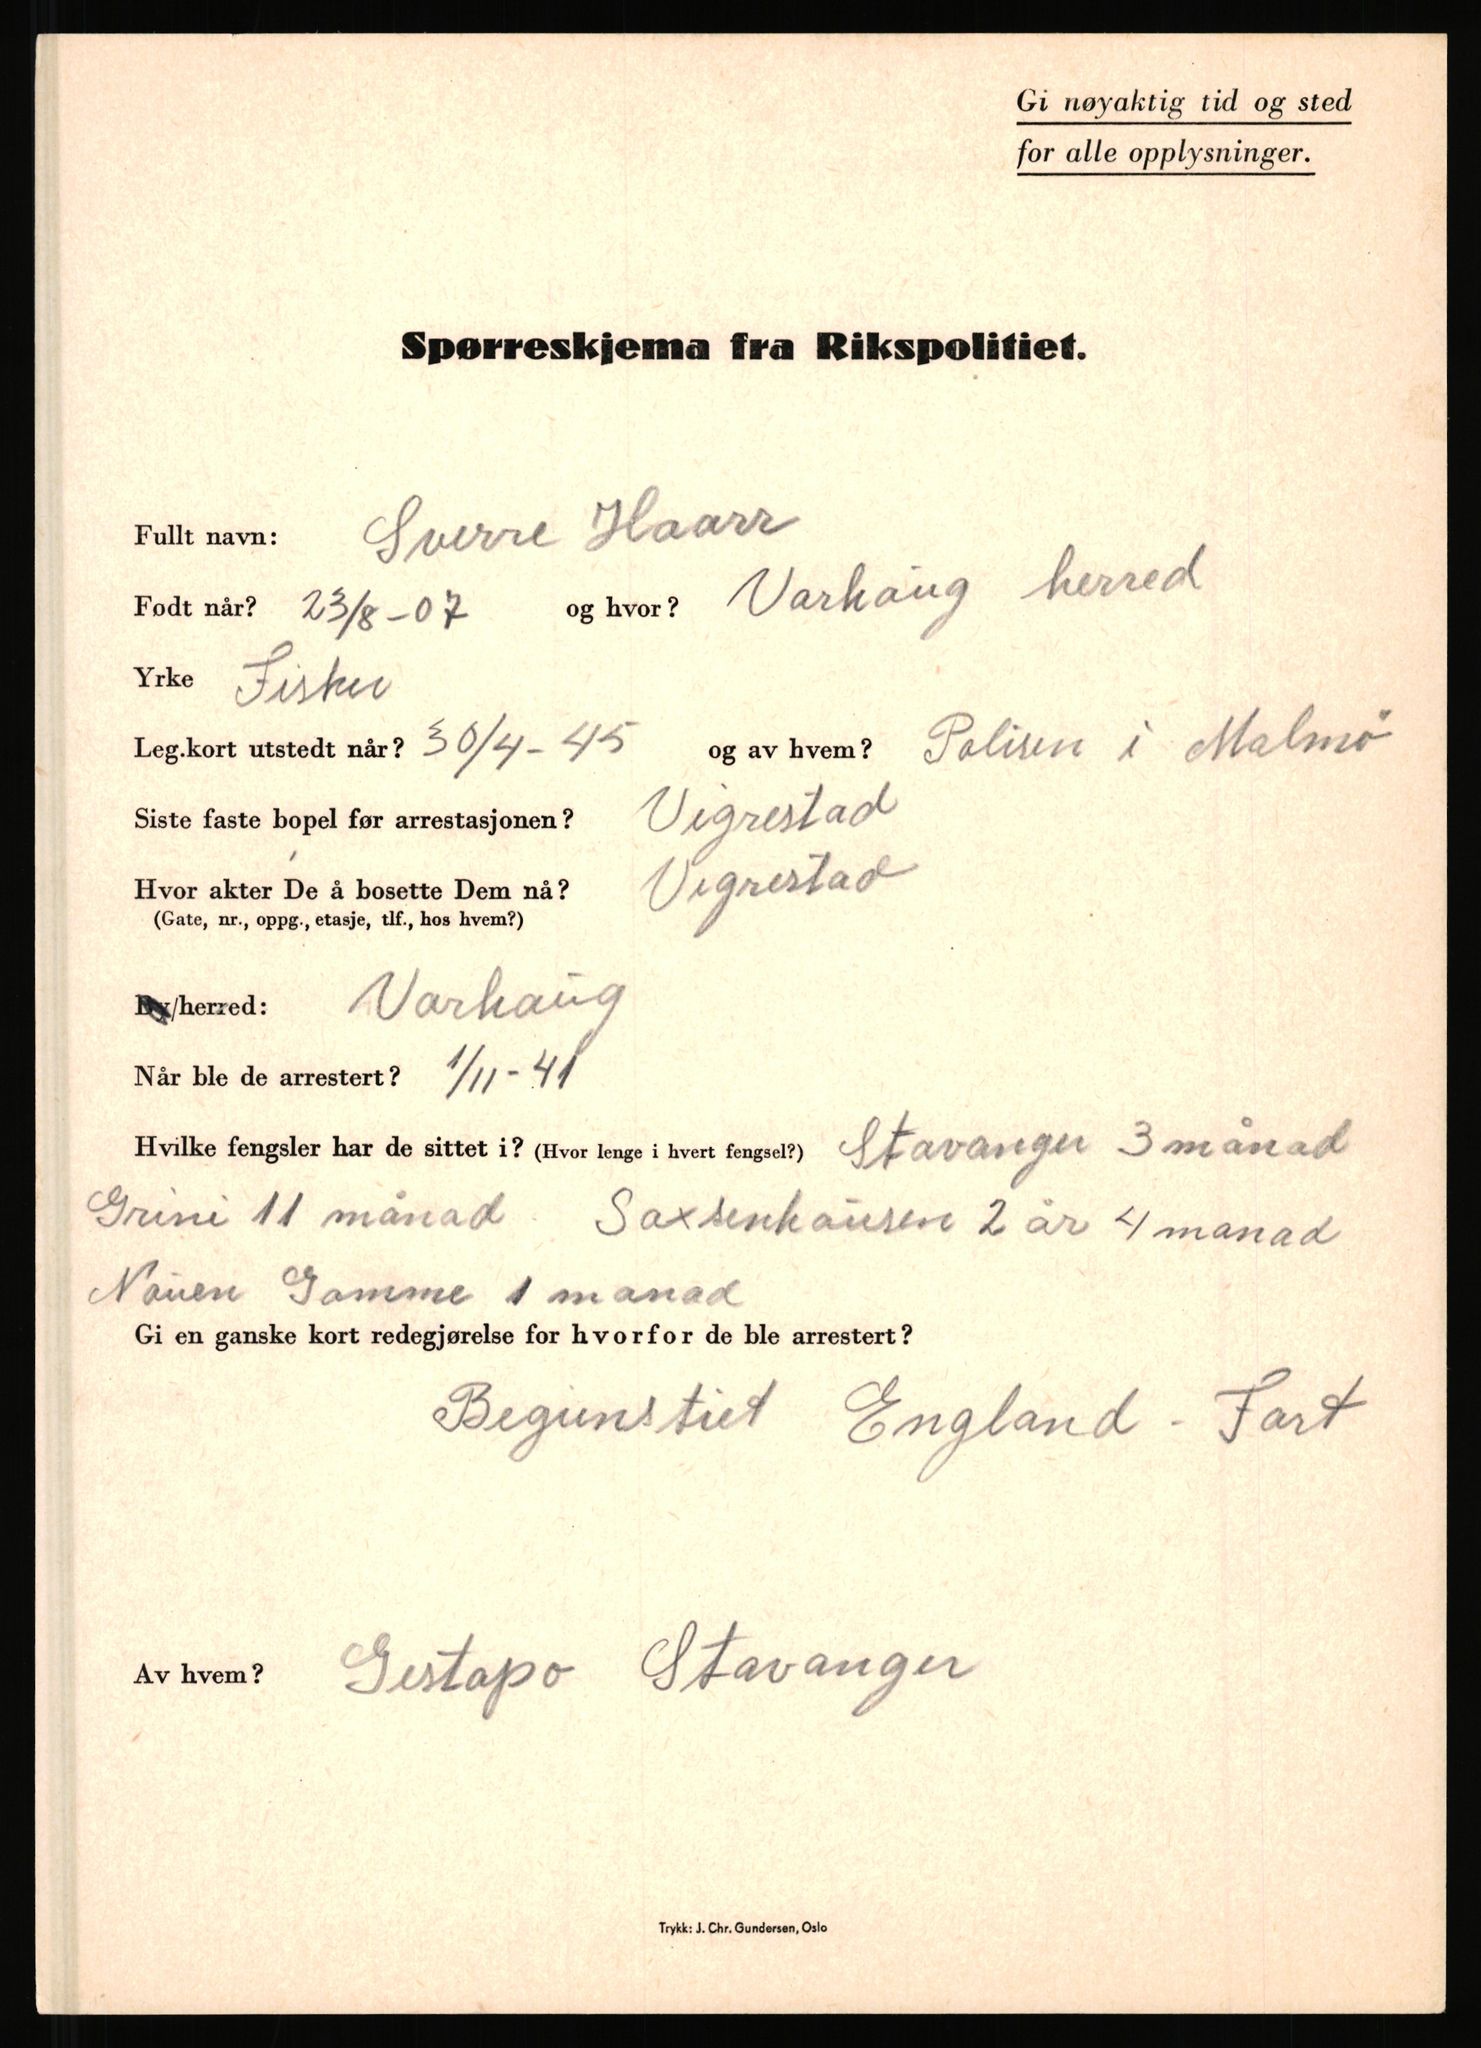 Gi nøyaktig tid og sted
for alle opplysninger.
Spørreskjema fra Rikspolitiet.
Fullt navn: Sverre Haarr
Født når? 23/8-07 og hvor? Varhaug herred
Yrke Fisker
Leg.kort utstedt når? 30/4-45 og av hvem? Polisen i Malmö
Siste faste bopel før arrestasjonen? Vigrestad
Hvor akter De å bosette Dem nå? Vigrestad
(Gate, nr., oppg., etasje, tlf., hos hvem?)
By/herred: Varhaug
Når ble de arrestert? 1/11-41
Hvilke fengsler har de sittet i? (Hvor lenge i hvert fengsel?) Stavanger 3 månad
Grini 11 månad Saxsenhausen 2 år 4 manad
Nauen Gamme 1 manad
Gi en ganske kort redegjørelse for hvorfor de ble arrestert?
Begunstiet England - Fart
Av hvem? Gestapo Stavanger
Trykk: J. Chr. Gundersen, Oslo